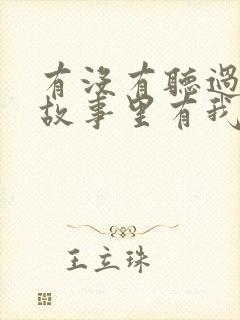 有沒有聽過
故事里有我
王立珠